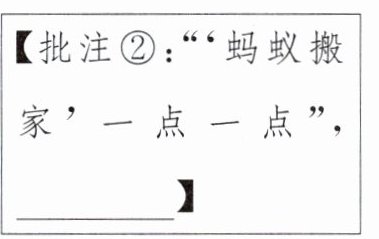 【批注②：“‘蚂蚁搬
家’一点一点”，
__________】